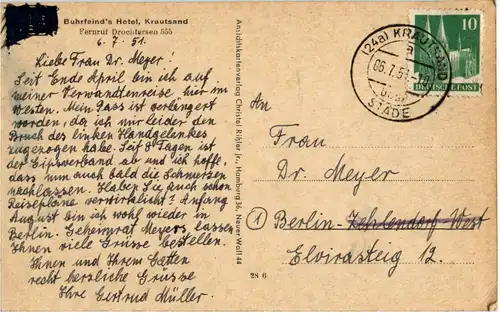 Buhrfeind's Hotel, Krautsand
Fernruf Drochtersen 555
6. 7. 51.
Liebe Frau Dr. Meyer!
Seit Ende April bin ich auf
meiner Verwandtenreise hier im
Westen. Mein Pass ist verlängert
worden, da ich mir leider den
Bruch des linken Handgelenkes
zugezogen habe. Seit 8 Tagen ist
der Gipsverband ab und ich hoffe,
dass nun auch bald die Schmerzen
nachlassen. Haben Sie auch schon
Reisepläne verwirklicht? Anfang
August bin ich wohl wieder in
Berlin. Geheimrat Meyers lassen
Ihnen viele Grüsse bestellen.
Ihnen und Ihrem Gatten
recht herzliche Grüsse
Ihre Gertrud Müller.
Amsichtskartenverlag Christel Röhler jr., Hamburg 36, Neuer Wall 44
28 6
(24a) KRAUTSAND
a
06.7.51
über
STADE
10
DEUTSCHE POST
An
Frau
Dr. Meyer
1 Berlin-Zehlendorf West
Elvirasteig 12.